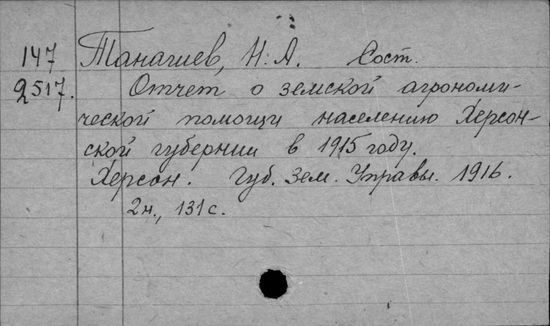 147 Танашев, Н. А. Сост.
2517. Отчет о земской агрономи-
ческой помощи населению Херсон-
ской губернии в 1915 году.
Херсон. Губ. Зем. Управы. 1916.
2н., 131 с.